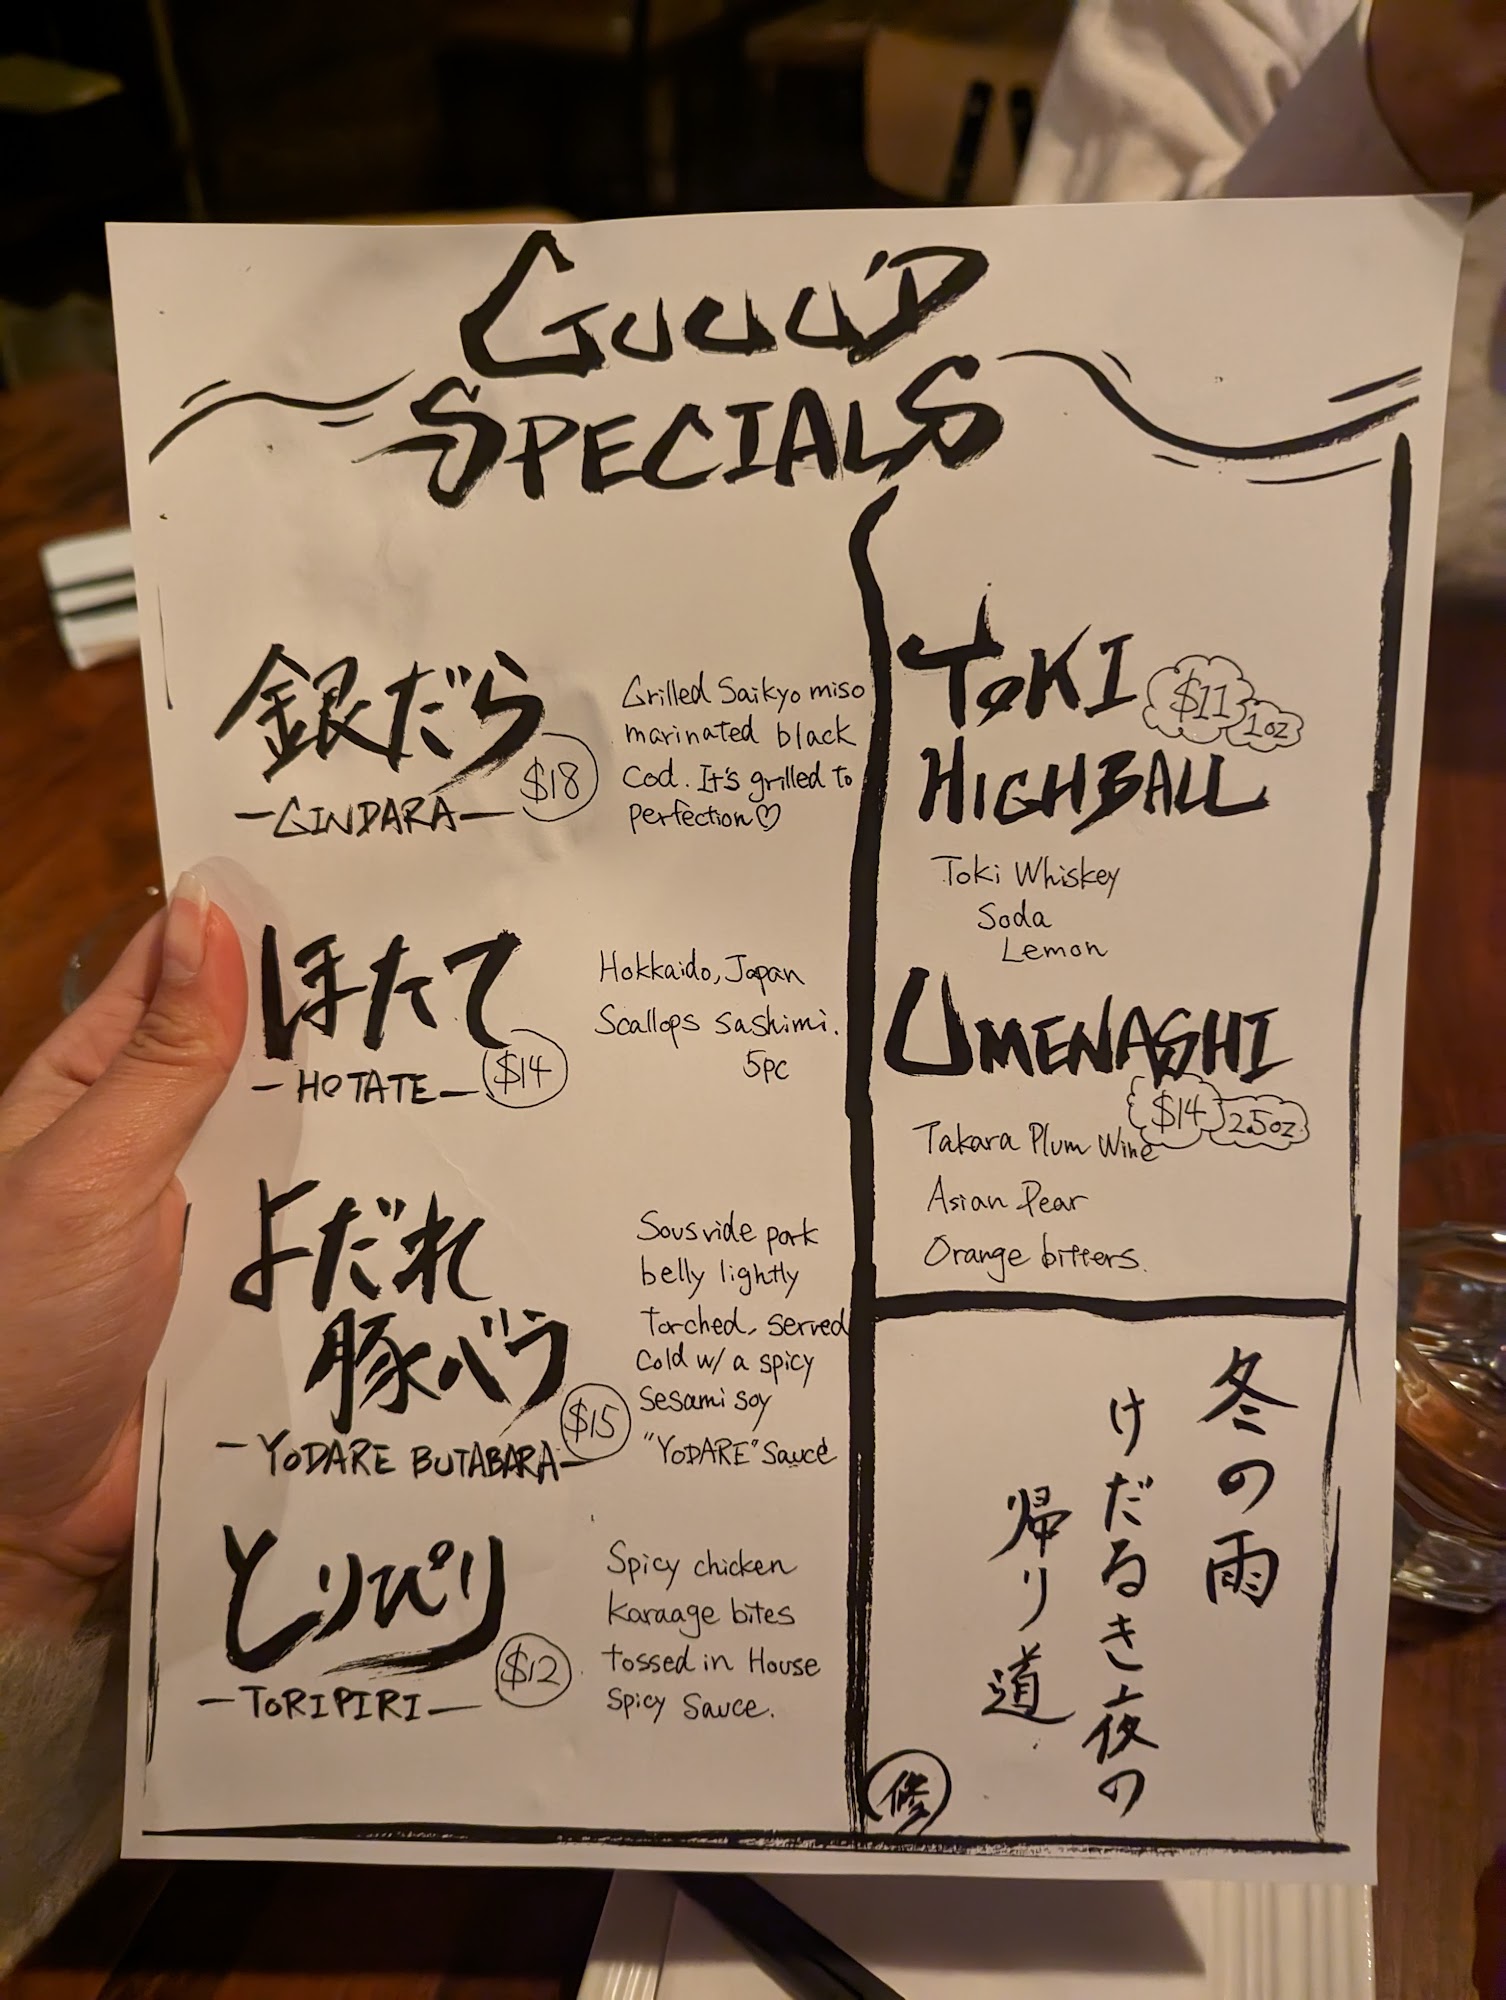 GUUU'D
SPECIALS
銀だら
$18
-GINDARA-
Grilled Saikyo miso
marinated black
Cod. It's grilled to
perfection♡
ほたて
$14
-HOTATE-
Hokkaido, Japan
Scallops sashimi.
5pc
よだれ
豚バラ
$15
-YODARE BUTABARA-
Sousvide pork
belly lightly
torched, served
cold w/ a spicy
sesami soy
"YODARE" Sauce
とりぴり
$12
-TORIPIRI-
Spicy chicken
karaage bites
tossed in House
Spicy Sauce.
TOKI
$11 1oz
HIGHBALL
Toki Whiskey
Soda
Lemon
UMENASHI
$14 2.5oz
Takara Plum Wine
Asian Pear
Orange bitters.
冬の雨
けだるき夜の
帰り道
修